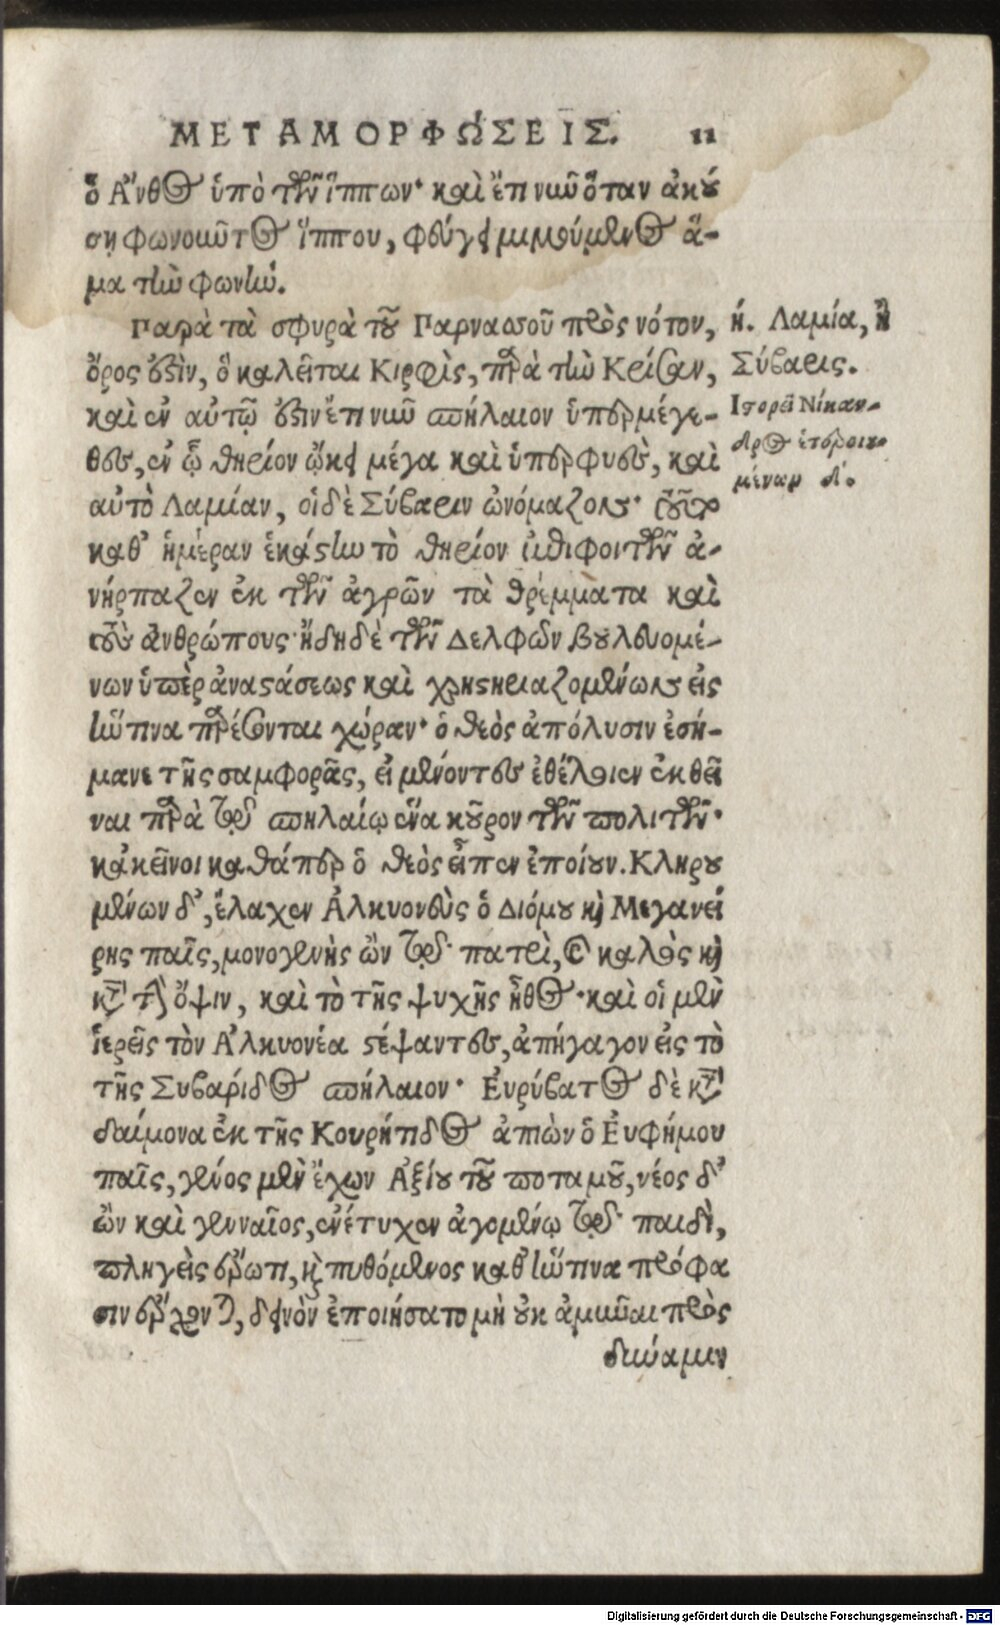 ΜΕΤΑΜΟΡΦΏΣΕΙΣ. 11
ὃ Ἄνθος ὑπὸ τῶν ἵππων· καὶ ἔτι νῦν ὅταν ἀκού
ση φωνοιῶτος ἵππου, φεύγει μιμούμενος ἅ-
μα τὴν φωνήν.
Παρὰ τὰ σφυρὰ τοῦ Παρνασσοῦ πρὸς νότον,
ὄρος ἐστὶν, ὃ καλεῖται Κίρφις, παρὰ τὴν Κρίσαν,
καὶ ἐν αὐτῷ ἐστιν ἔτι νῦν σπήλαιον ὑπερμέγε-
θες, ἐν ᾧ θηρίον ᾤκει μέγα καὶ ὑπερφυὲς, καὶ
αὐτὸ Λαμίαν, οἱ δὲ Σύβαριν ὠνόμαζον· τοῦτο
καθ’ ἡμέραν ἑκάστην τὸ θηρίον ἐπιφοιτῶν ἀ-
νήρπαζεν ἐκ τῶν ἀγρῶν τὰ θρέμματα καὶ
τοὺς ἀνθρώπους· ἤδη δὲ τῶν Δελφῶν βουλευομέ-
νων ὑπὲρ ἀναστάσεως καὶ χρηστηριαζομένων εἰς
ἥντινα παρέσονται χώραν· ὁ θεὸς ἀπόλυσιν ἐσή-
μανε τῆς σαμφορᾶς, εἰ μένοντες ἐθέλοιεν ἐκθεῖ
ναι παρὰ τῷ σπηλαίῳ ἕνα κοῦρον τῶν πολιτῶν·
κἀκεῖνοι καθάπερ ὁ θεὸς εἶπεν ἐποίουν. Κληρου
μένων δ’, ἔλαχεν Ἀλκυονεὺς ὁ Διόμου καὶ Μεγανεί
ρης παῖς, μονογενὴς ὢν τῷ πατρὶ, καὶ καλὸς καὶ
κατὰ τὴν ὄψιν, καὶ τὸ τῆς ψυχῆς ἦθος· καὶ οἱ μὲν
ἱερεῖς τὸν Ἀλκυονέα στέψαντες, ἀπήγαγον εἰς τὸ
τῆς Συβαρίδος σπήλαιον· Εὐρύβατος δὲ κατὰ
δαίμονα ἐκ τῆς Κουρήτιδος ἀπιὼν ὁ Εὐφήμου
παῖς, γένος μὲν ἔχων Ἀξίου τοῦ ποταμοῦ, νέος δ’
ὢν καὶ γενναῖος, ἐνέτυχεν ἀγομένῳ τῷ παιδὶ,
πληγεὶς ἔρωτι, καὶ πυθόμενος καθ’ ἥντινα πρόφα
σιν ἔρχονται, δεινὸν ἐποιήσατο μὴ οὐκ ἀμῦναι πρὸς
δύναμιν
η. Λαμία, ἢ
Σύβαρις.
Ἱστορεῖ Νίκαν-
δρος ἑτεροιου-
μένων δ.
Digitalisierung gefördert durch die Deutsche Forschungsgemeinschaft - DFG